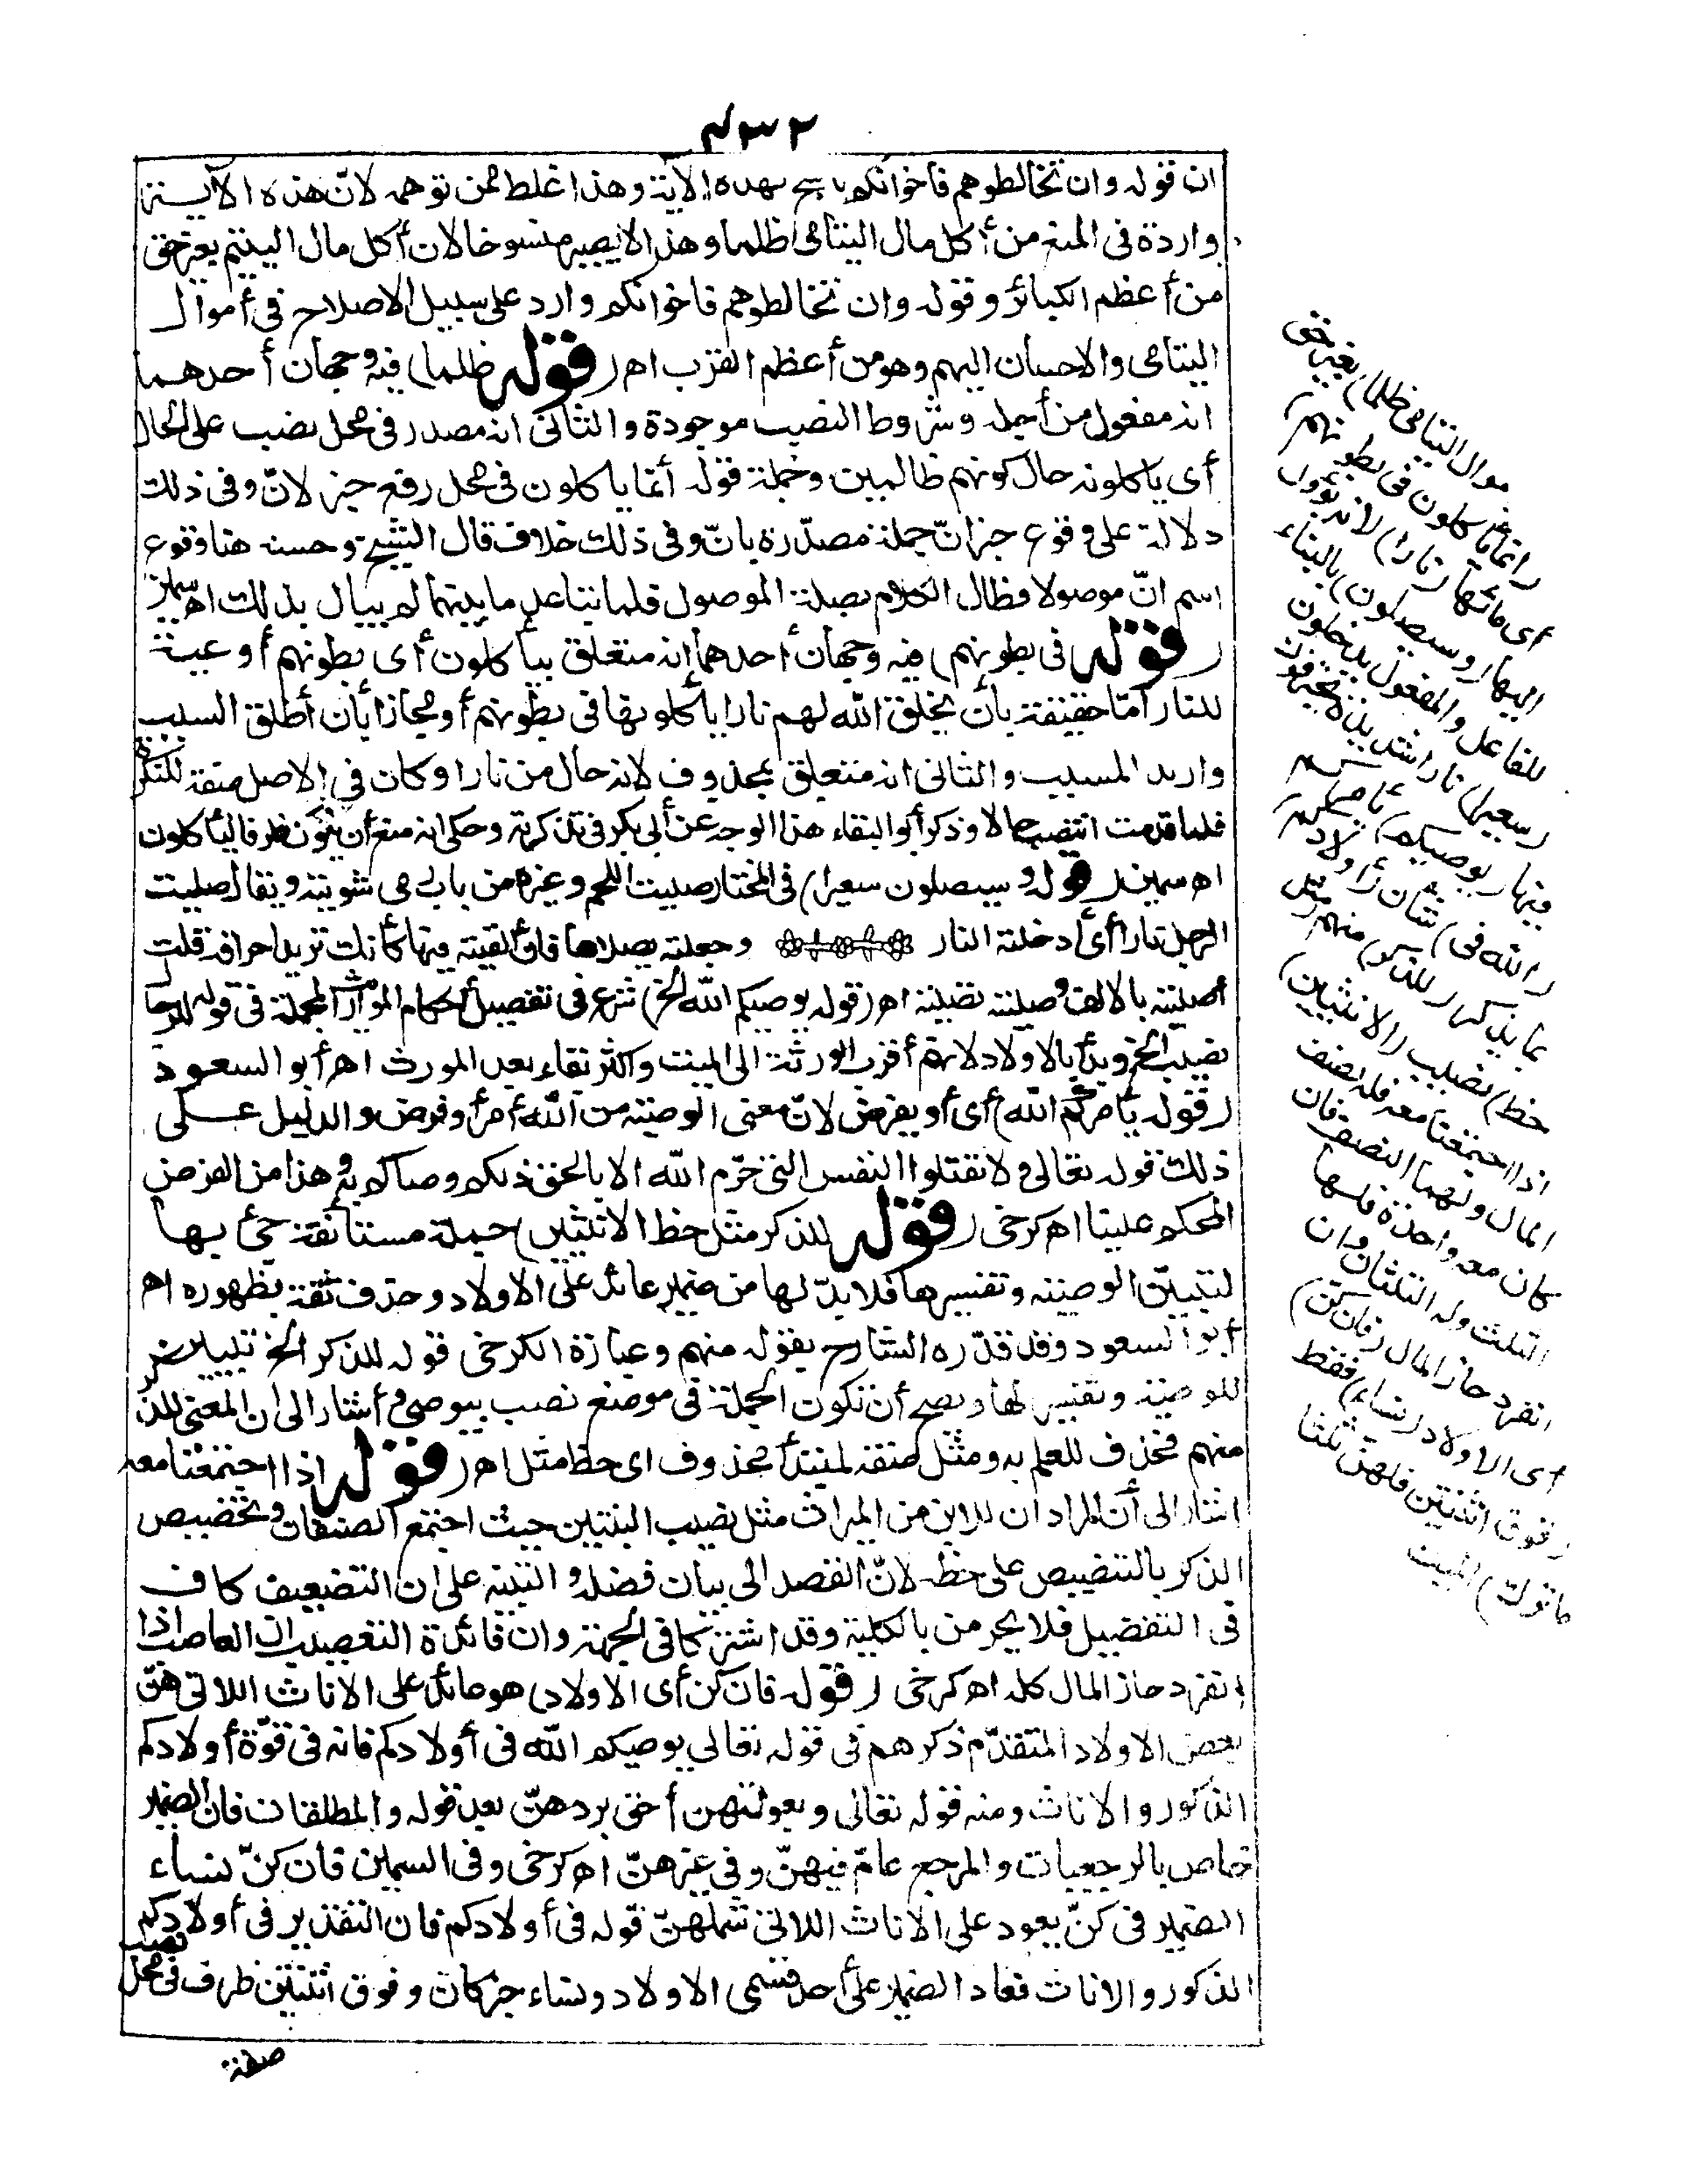 ٤٣٢
ان قوله وان تخالطوهم فاخوانكم ناسخ بهذه الآية وهذا غلط ممن توهمه لانّ هذه الآية
واردة فى المنع من أكل مال اليتامى ظلما وهذا لا يصير منسوخا لان أكل مال اليتيم بغير حق
من أعظم الكبائر وقوله وان تخالطوهم فاخوانكم وارد على سبيل الاصلاح فى أموال
اليتامى والاحسان اليهم وهو من أعظم القرب اه (قوله ظلما) فيه وجهان أحدهما
انه مفعول من أجله وشروط النصب موجودة والثانى انه مصدر فى محل نصب على الحال
أى يأكلونه حال كونهم ظالمين وجملة قوله أنما يأكلون فى محل رفع خبر لانّ وفى ذلك
دلالة على وقوع خبر انّ جملة مصدّرة بانّ وفى ذلك خلاف قال الشيخ وحسنه هنا وقوع
اسم انّ موصولا فطال الكلام بصلة الموصول فلما تباعد ما بينهما لم يبال بذلك اه سمين
(قوله فى بطونهم) فيه وجهان أحدهما انه متعلق بيأكلون أى بطونهم أوعية
للنار امّا حقيقة بأن يخلق الله لهم نارا يأكلونها فى بطونهم أو مجازا بأن أطلق السبب
واريد المسبب والثانى انه متعلق بمحذوف لانه حال من نارا وكان فى الاصل صفة للنكرة
فلما قدمت انتصب حالا وذكر أبو البقاء هذا الوجه عن أبى بكر فى تذكرته وحكى انه منع أن يكون ظرفا ليأكلون
اه سمين (قوله وسيصلون سعيرا) فى المختار صليت اللحم وغيره من باب رمى شويته ويقال صليت
الرجل نارا أى أدخلته النار وجعلته يصلاها فان ألقيته فيها كأنك تريد احراقه قلت
أصليته بالالف وصليته تصلية اه (قوله يوصيكم الله الخ) شرع فى تفصيل أحكام المواريث المجملة فى قوله للرجال
نصيب الخ وبدأ بالاولاد لانهم أقرب الورثة الى الميت وأكثر بقاء بعد المورث اه أبو السعود
(قوله يأمركم الله) أى أو يفرض لانّ معنى الوصية من الله أمر أو فرض والدليل على
ذلك قوله تعالى ولا تقتلوا النفس التى حرّم الله الا بالحق ذلكم وصاكم به وهذا من الفرض
المحكم علينا اه كرخى (قوله للذكر مثل حظ الانثيين) جملة مستأنفة جئ بها
لتبيين الوصية وتفسيرها فلا بدّ لها من ضمير عائد على الاولاد وحذف ثقة بظهوره اه
أبو السعود وقد قدّره الشارح بقوله منهم وعبارة الكرخى قوله للذكر الخ تبيين
للوصية وتفسير لها ويصح أن تكون الجملة فى موضع نصب بيوصى وأشار الى أن المعنى للذكر
منهم فحذف للعلم به ومثل صفة لمبتدأ محذوف اى حظ مثل اه (قوله اذا اجتمعتا معه
اشار الى أن المراد ان للابن من الميراث مثل نصيب البنتين حيث اجتمع الصنفان وتخصيص
الذكر بالتنصيص على حظه لانّ القصد الى بيان فضله والتنبيه على ان التضعيف كاف
فى التفضيل فلا يحرمن بالكلية وقد اشتركا فى الجهة وان فائدة التعصيب ان العاصب اذا
انفرد حاز المال كله اه كرخى (قوله فان كنّ أى الاولاد) هو عائد على الاناث اللاتى هنّ
بعض الاولاد المتقدّم ذكرهم فى قوله تعالى يوصيكم الله فى أولادكم فانه فى قوّة أولادكم
الذكور والاناث ومنه قوله تعالى وبعولتهن أحق بردهنّ بعد قوله والمطلقات فان الضمير
خاص بالرجعيات والمرجع عامّ فيهنّ وفى غيرهنّ اه كرخى وفى السمين فان كنّ نساء
الضمير فى كنّ يعود على الاناث اللاتى شملهنّ قوله فى أولادكم فان التقدير فى أولادكم
الذكور والاناث فعاد الضمير على أحد قسمى الاولاد ونساء خبر كان وفوق اثنتين ظرف فى محل نصب
صفة
موال اليتامى ظلما) بغير حق
(انما يأكلون فى بطونهم)
أى ملئها (نارا) لانه يؤول
اليها (وسيصلون) بالبناء
للفاعل والمفعول يدخلون
(سعيرا) نارا شديدة يحترقون
فيها (يوصيكم) يأمركم
(الله فى) شأن (أولادكم)
بما يذكر (للذكر) منهم (مثل
حظ) نصيب (الانثيين)
اذا اجتمعتا معه فله نصف
المال ولهما النصف فان
كان معه واحدة فلها
الثلث وله الثلثان وان
انفرد حاز المال (فان كنّ)
أى الاولاد (نساء) فقط
(فوق اثنتين فلهن ثلثا
ما ترك) الميت